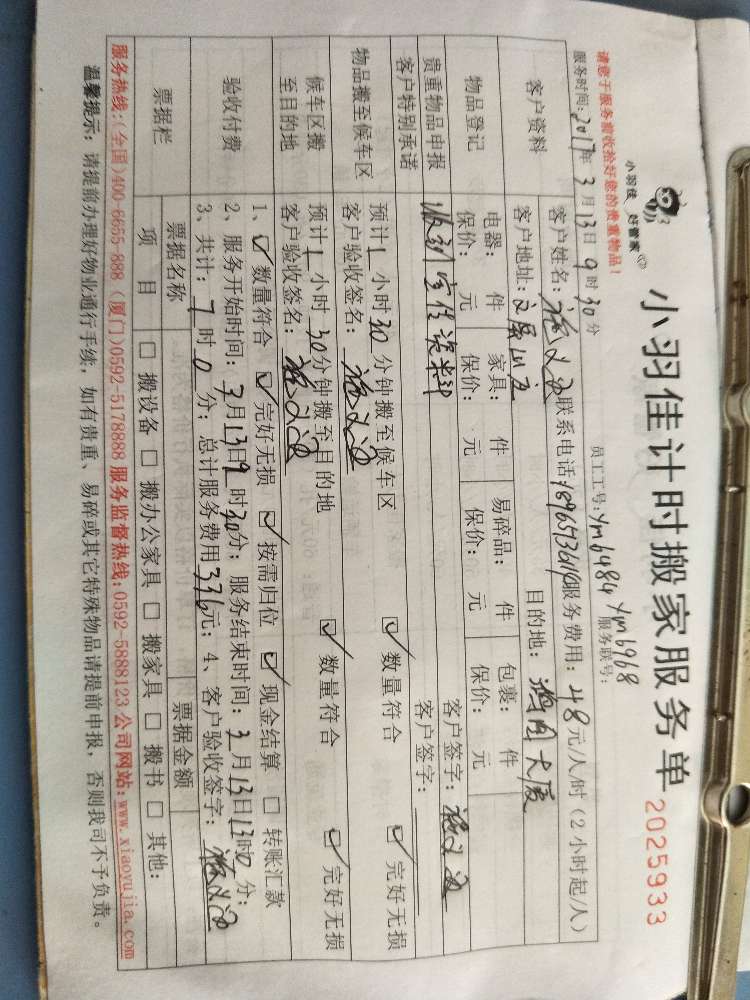 小羽佳计时搬家服务单 2025933
小羽佳 好管家
请您于服务前收拾好您的贵重物品！
员工工号：ym6484 ym6968
服务时间：2017年3月13日9时30分
服务联号：
客户资料
客户姓名：
联系电话：
服务费用：48元/人/时（2小时起/人）
客户地址：
目的地：
物品登记
电器： 件 家具： 件 易碎品： 件 包裹： 件
保价： 元 保价： 元 保价： 元 保价： 元
贵重物品申报
客户签字：
客户特别承诺
客户签字：
物品搬至候车区
预计1小时30分钟搬至候车区
客户验收签名：
数量符合 完好无损
候车区搬至目的地
预计1小时30分钟搬至目的地
客户验收签名：
数量符合 完好无损
验收付费
1、数量符合 完好无损 按需归位 现金结算 转账汇款
2、服务开始时间：3月13日9时30分；服务结束时间：3月13日13时0分；
3、共计：7时0分；总计服务费用336元；4、客户验收签字：
票据栏
票据名称 票据金额
项目 搬设备 搬办公家具 搬家具 搬书 其他：
服务热线：（全国）400-6655-888（厦门）0592-5178888 服务监督热线：0592-5888123 公司网站：www.xiaoyujia.com
温馨提示：请提前办理好物业通行手续，如有贵重、易碎或其它特殊物品请提前申报，否则我司不予负责。